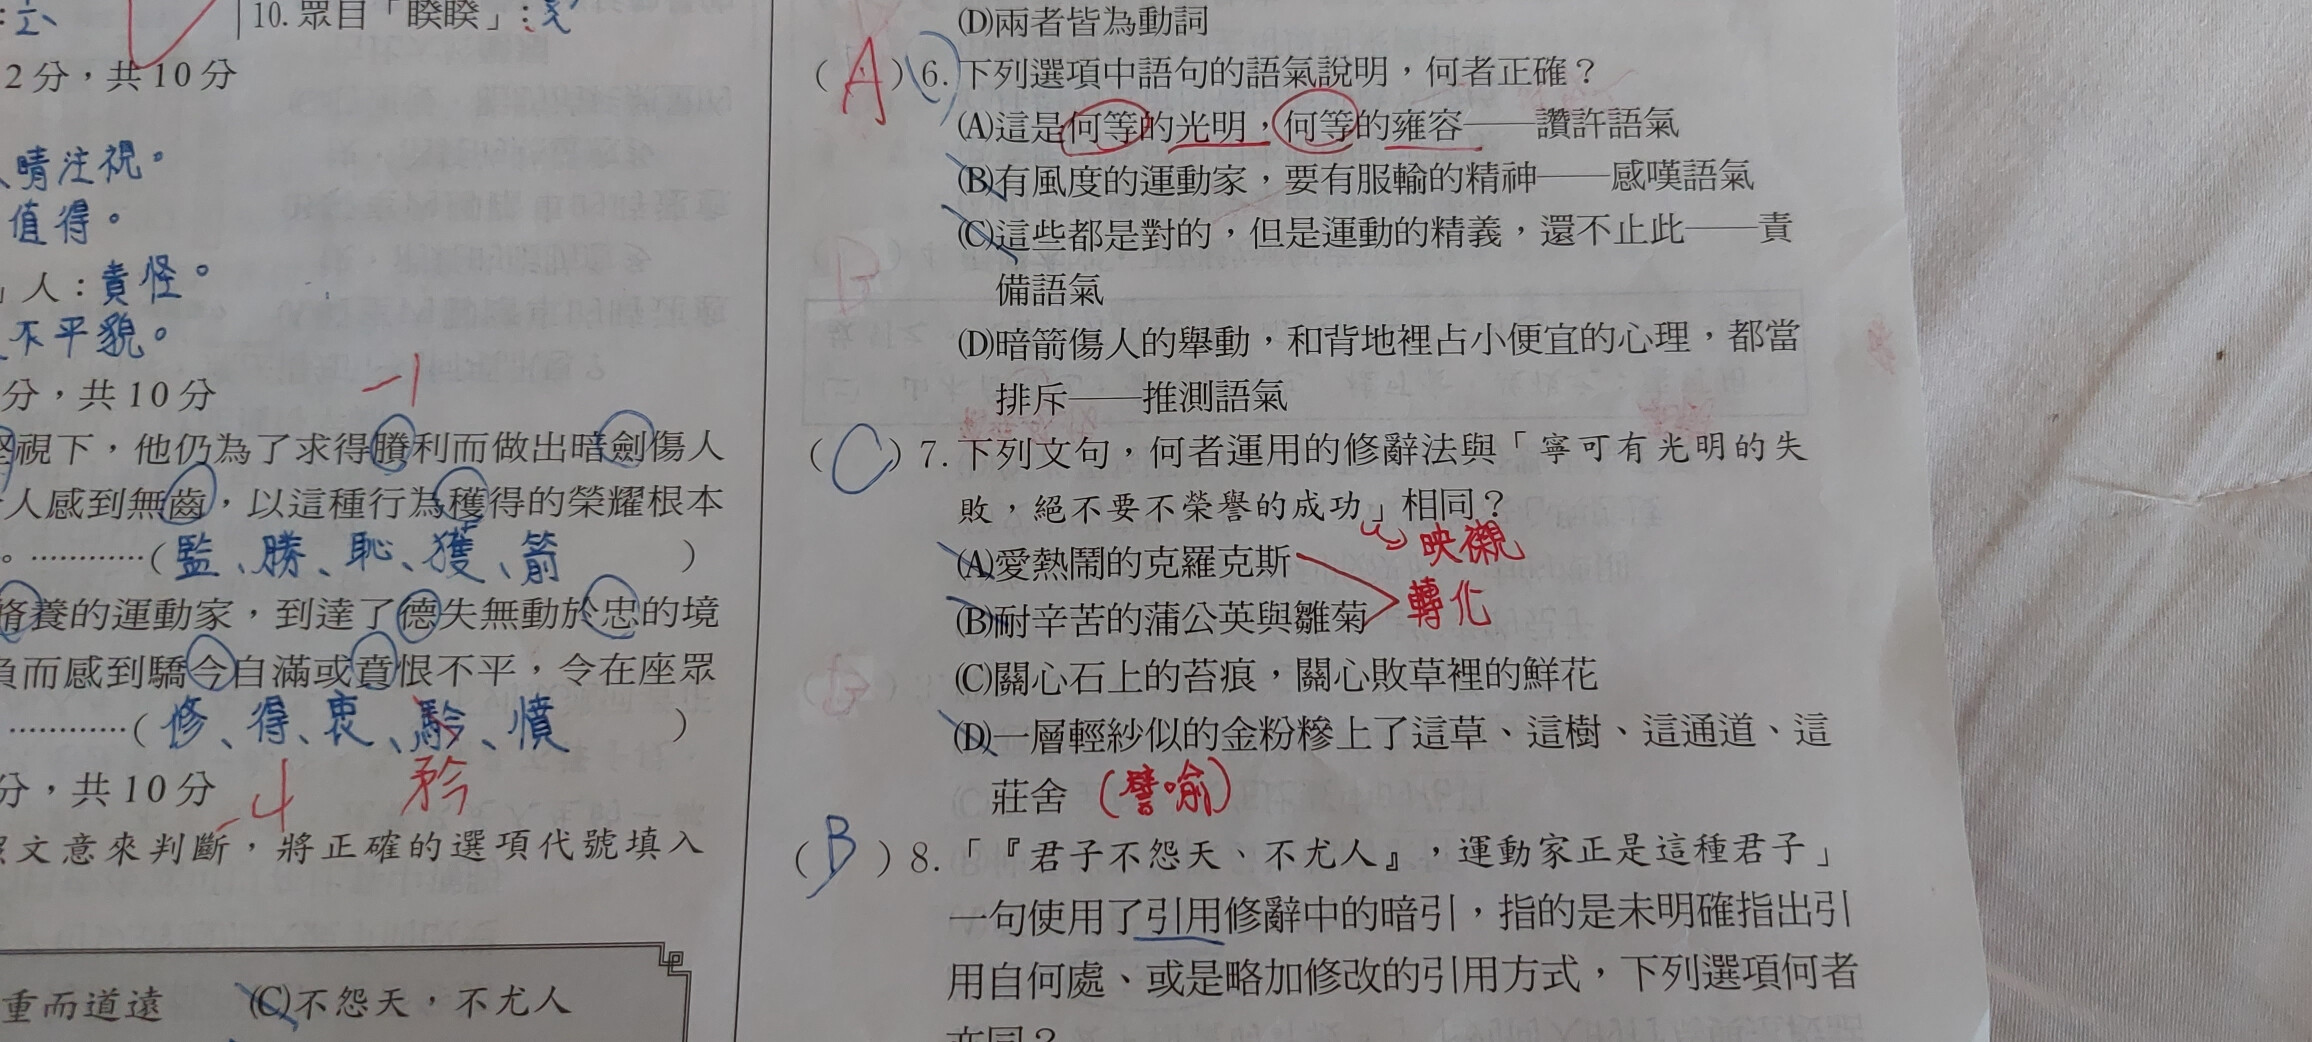 10. 眾目「睽睽」：
2分，共10分
睛注視。
值得。
」人：責怪。
不平貌。
分，共10分
-1
視下，他仍為了求得賸利而做出暗劍傷人
人感到無齒，以這種行為穫得的榮耀根本
。…………(監、勝、恥、獲、箭)
脩養的運動家，到達了德失無動於忠的境
負而感到驕今自滿或賁恨不平，令在座眾
…………(修、得、衷、、憤)
矜
分，共10分
-4
文意來判斷，將正確的選項代號填入
重而道遠 (C)不怨天，不尤人
(D)兩者皆為動詞
(A)6.下列選項中語句的語氣說明，何者正確？
(A)這是何等的光明，何等的雍容——讚許語氣
(B)有風度的運動家，要有服輸的精神——感嘆語氣
(C)這些都是對的，但是運動的精義，還不止此——責
備語氣
(D)暗箭傷人的舉動，和背地裡占小便宜的心理，都當
排斥——推測語氣
(C)7.下列文句，何者運用的修辭法與「寧可有光明的失
敗，絕不要不榮譽的成功」相同？
映襯
(A)愛熱鬧的克羅克斯
轉化
(B)耐辛苦的蒲公英與雛菊
(C)關心石上的苔痕，關心敗草裡的鮮花
(D)一層輕紗似的金粉糝上了這草、這樹、這通道、這
莊舍 (譬喻)
(B)8.「『君子不怨天、不尤人』，運動家正是這種君子」
一句使用了引用修辭中的暗引，指的是未明確指出引
用自何處、或是略加修改的引用方式，下列選項何者
亦同？